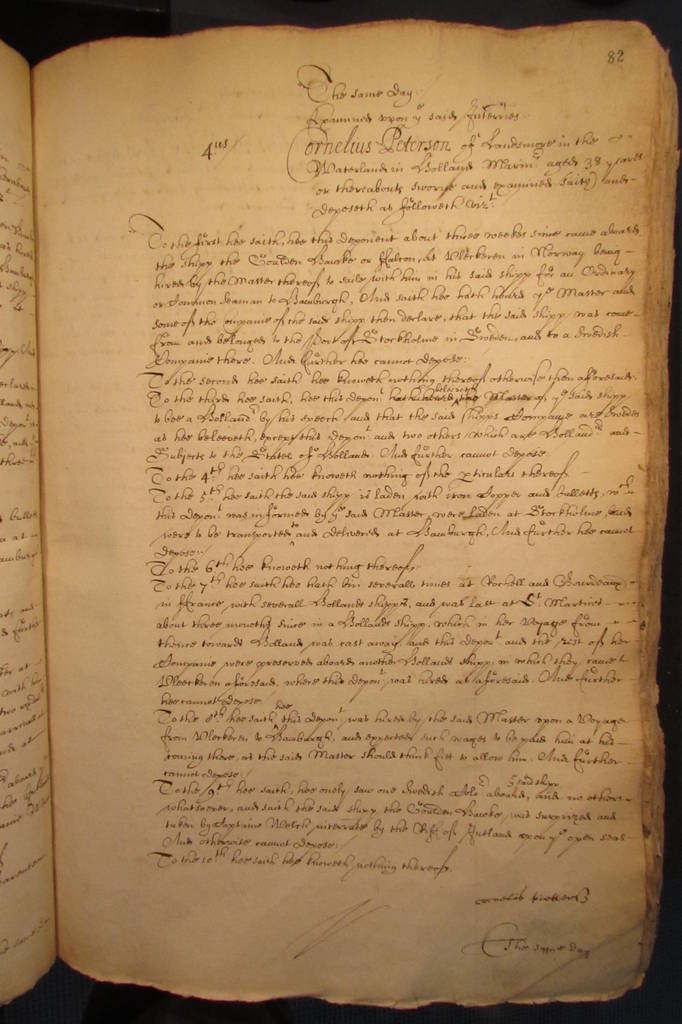 82
The same day.
Examined upon ye said Interries.
4us
Cornelius Peterson of Landsmore in the
Waterland in Holland Marinr aged 38 yeares
or thereabouts sworne and examined saith and
deposeth as followeth vizt.
To the first hee saith, hee this deponent about three weekes since came aboard
the shipp the Goulden Hawke or Falcon, at Fleckeren in Norway being
hired by the Master thereof to saile with him in his said shipp for an Ordinary
or Common seaman to Hamburgh, And saith hee hath heard ye Master and
some of the companie of the said shipp then declare, that the said shipp was come
from and belonged to the Port of Stockholme in Sweden, and to a Swedish
Companie there. And further hee cannot depose:
To the second hee saith hee knoweth nothing thereof otherwise then aforesaid.
To the third hee saith, hee this depont beleeveth the Master of ye said shipp
to bee a Hollandr by his speech and that the said shipps Companie are Swedes
as hee beleeveth, except this depont and two others which are Hollandrs and
Subjects to the States of Holland. And further cannot depose.
To the 4th hee saith hee knoweth nothing of the pticulars thereof.
To the 5th hee saith the said shipp is laden with iron Copper and
this depont was informed by ye said Master, were laden at Stockholme, and
were to be transported to and delivered at Hamburgh, And further hee cannot
depose.
To the 6th hee knoweth nothing thereof.
To the 7th hee saith hee hath bin severall times at Rochell and Bourdeaux
in France with severall Hollands shipps, and was last at St. Martins
about three moneths since in a Hollands shipp, which in her voyage from
thence towards Holland was cast away, and this depont and the rest of her
Companie were preserved aboard another Hollands shipp, in which they came to
Fleckeren aforesaid, where this depont was hired as aforesaid. And further
hee cannot depose.
To the 8th hee saith hee this depont was hired by the said Master upon a Voyage
from Fleckeren to Hamburgh, and expected such wages to be paid him at his
coming there, as the said Master should think fitt to allow him. And further
cannot depose.
To the 9th hee saith, hee onely saw one Swedish aboard, and no other
whatsoever, and saith the said shipp the Goulden Hawke was surprized and
taken by Captaine Welch, by the of Jutland upon ye open seas
And otherwise cannot depose:
To the 10th hee saith hee knoweth nothing thereof.
cornelis
The same day